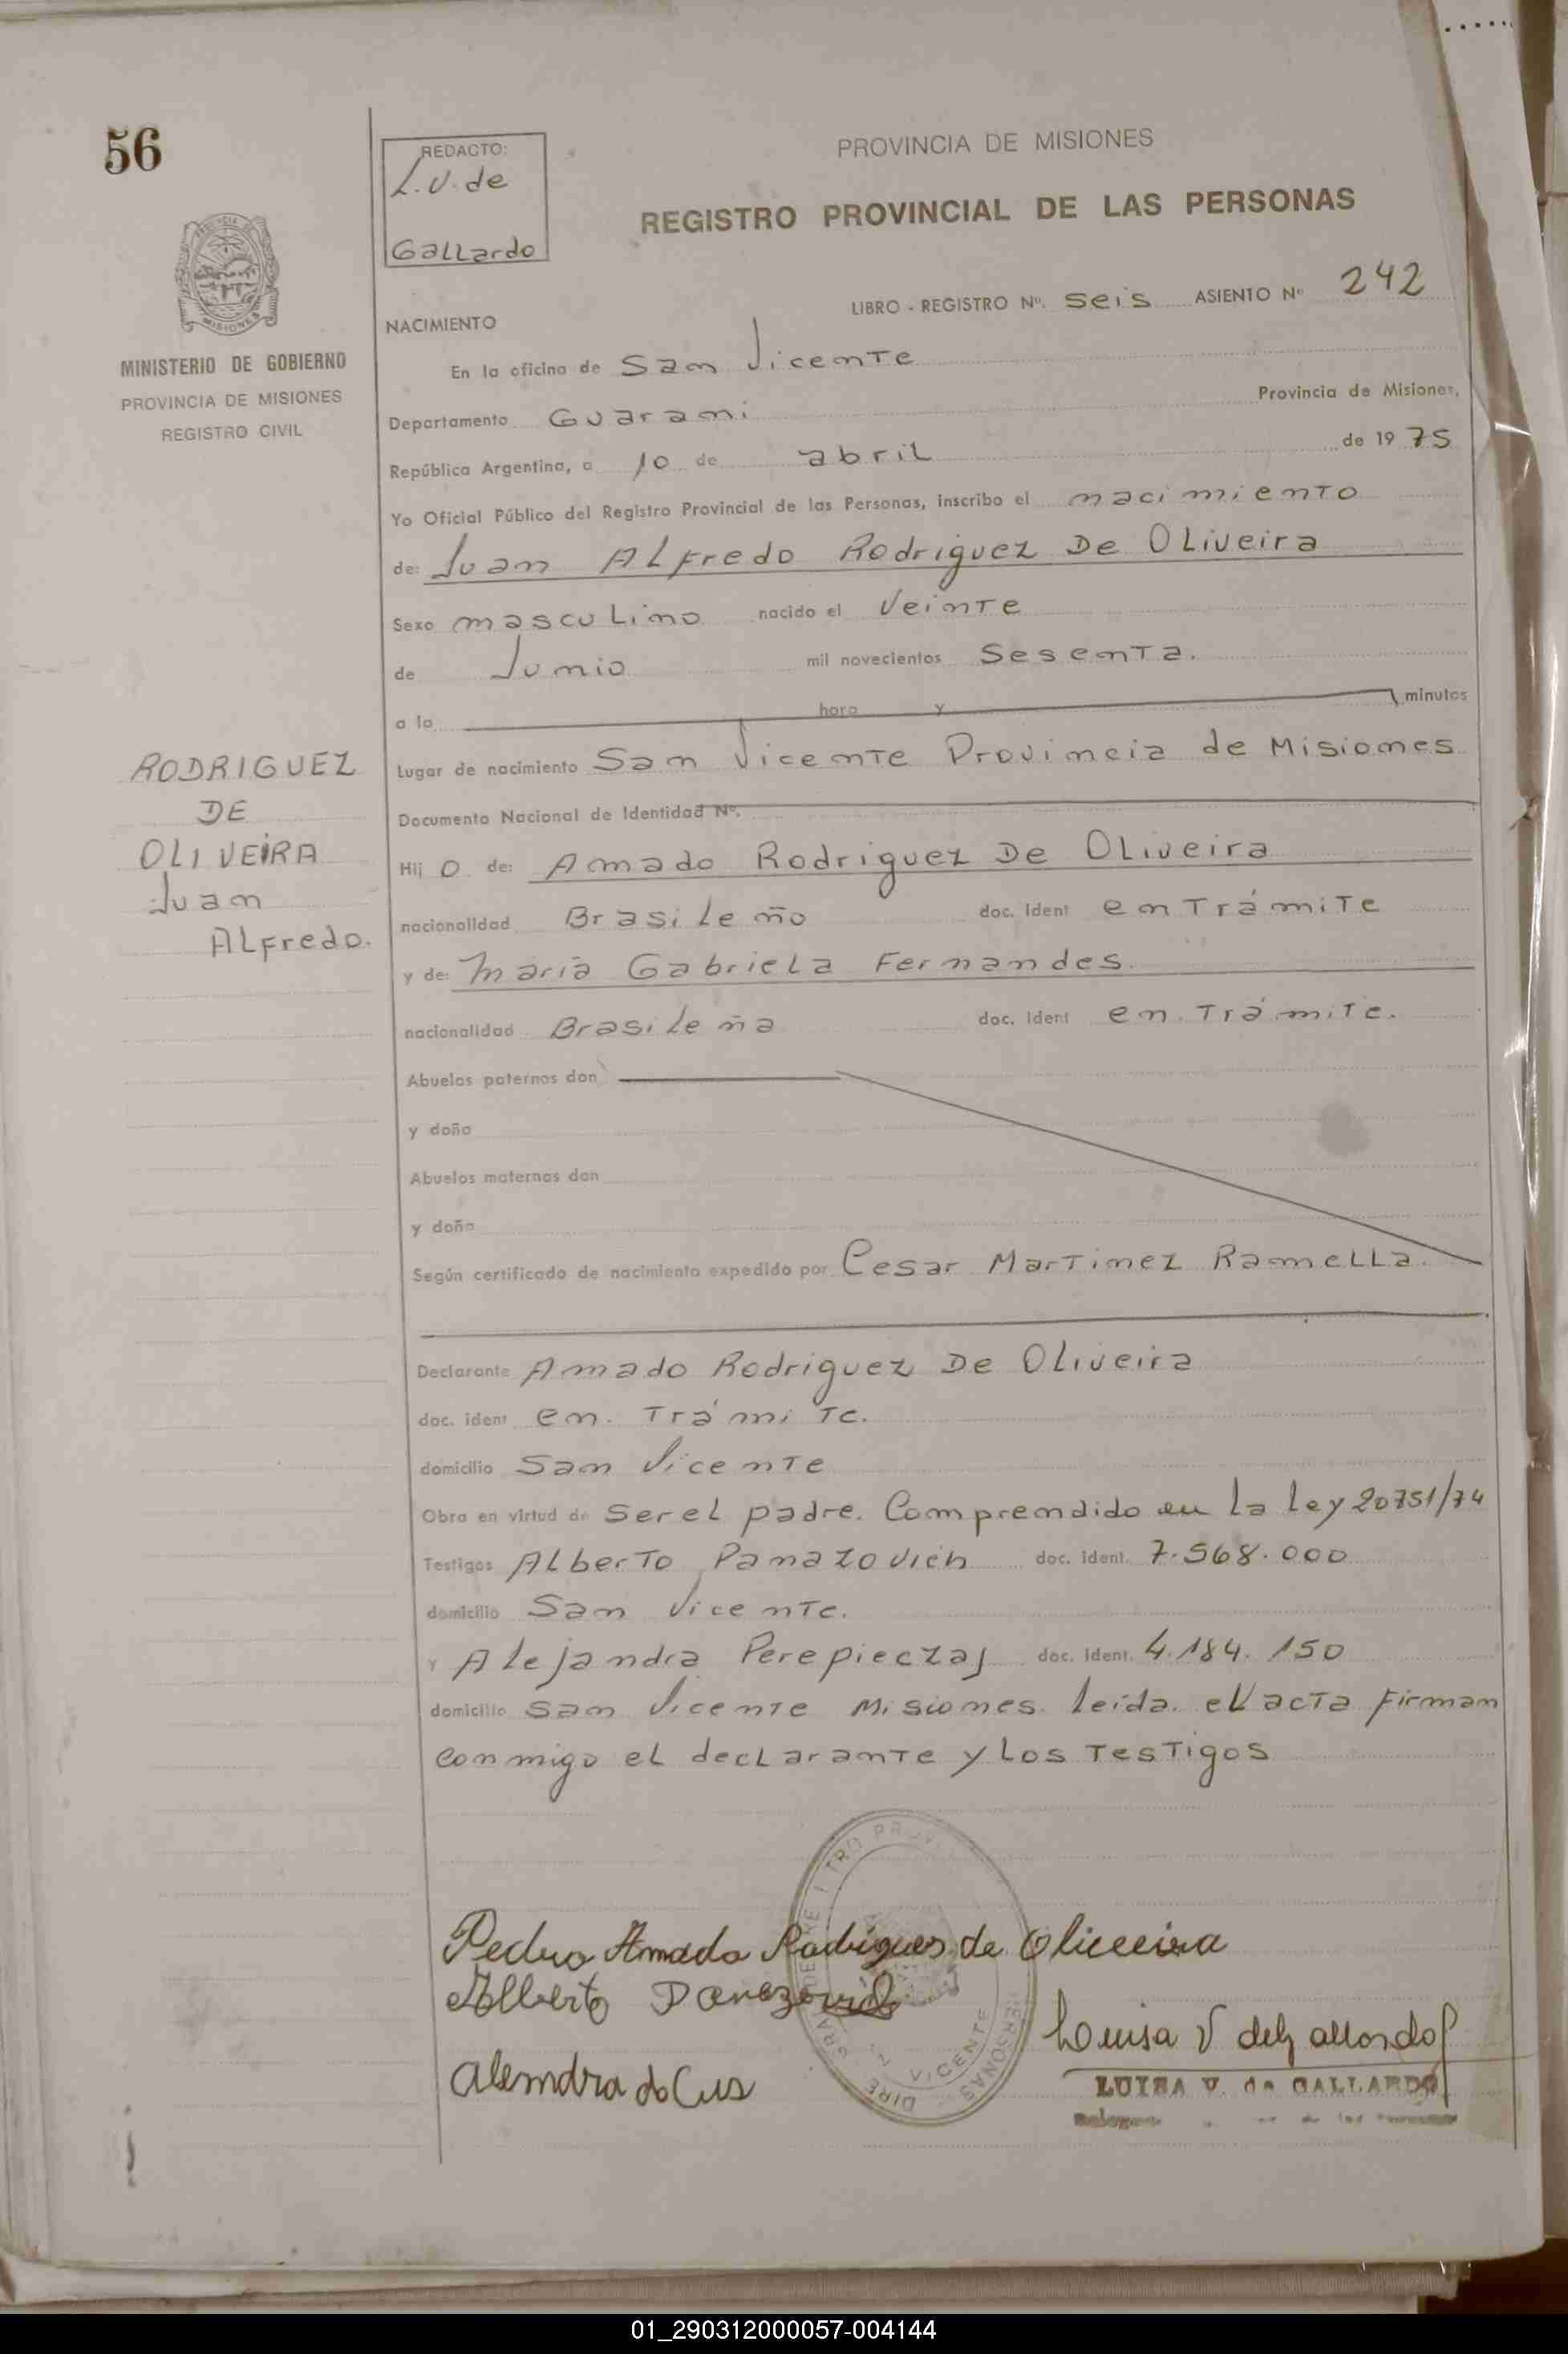 56
REDACTO:
L.V. de
Gallardo
PROVINCIA DE MISIONES
REGISTRO PROVINCIAL DE LAS PERSONAS
MISIONES
MINISTERIO DE GOBIERNO
PROVINCIA DE MISIONES
REGISTRO CIVIL
LIBRO - REGISTRO Nº. seis ASIENTO Nº 242
NACIMIENTO
En la oficina de San Vicente
Departamento Guarani Provincia de Misiones,
República Argentina, a 10 de abril de 1975
Yo Oficial Público del Registro Provincial de las Personas, inscribo el nacimiento
de: Juan Alfredo Rodriguez De Oliveira
Sexo masculino nacido el Veinte
de Junio mil novecientos Sesenta.
a la hora y minutos
Lugar de nacimiento San Vicente Provincia de Misiones
Documento Nacional de Identidad Nº.
Hij o de: Amado Rodriguez De Oliveira
nacionalidad Brasileño doc. Ident en Trámite
y de: Maria Gabriela Fernandes
nacionalidad Brasileña doc. Ident en Trámite.
Abuelos paternos don
y doña
Abuelos maternos don
y doña
Según certificado de nacimiento expedido por Cesar Martinez Ramella.
RODRIGUEZ
DE
OLIVEIRA
Juan
Alfredo.
Declarante Amado Rodriguez De Oliveira
doc. ident en Trámite.
domicilio San Vicente
Obra en virtud de ser el padre. Comprendido en la Ley 20751/74
Testigos Alberto Panazovich doc. Ident. 7.568.000
domicilio San Vicente.
y Alejandra Perepieczaj doc. ident. 4.184.150
domicilio San Vicente Misiones leída el acta firman
conmigo el declarante y los testigos
Pedro Amado Rodrigues de Oliveira
Alberto
VICENTE
Luisa V de Gallardo
LUISA V. de GALLARDO
01_290312000057-004144